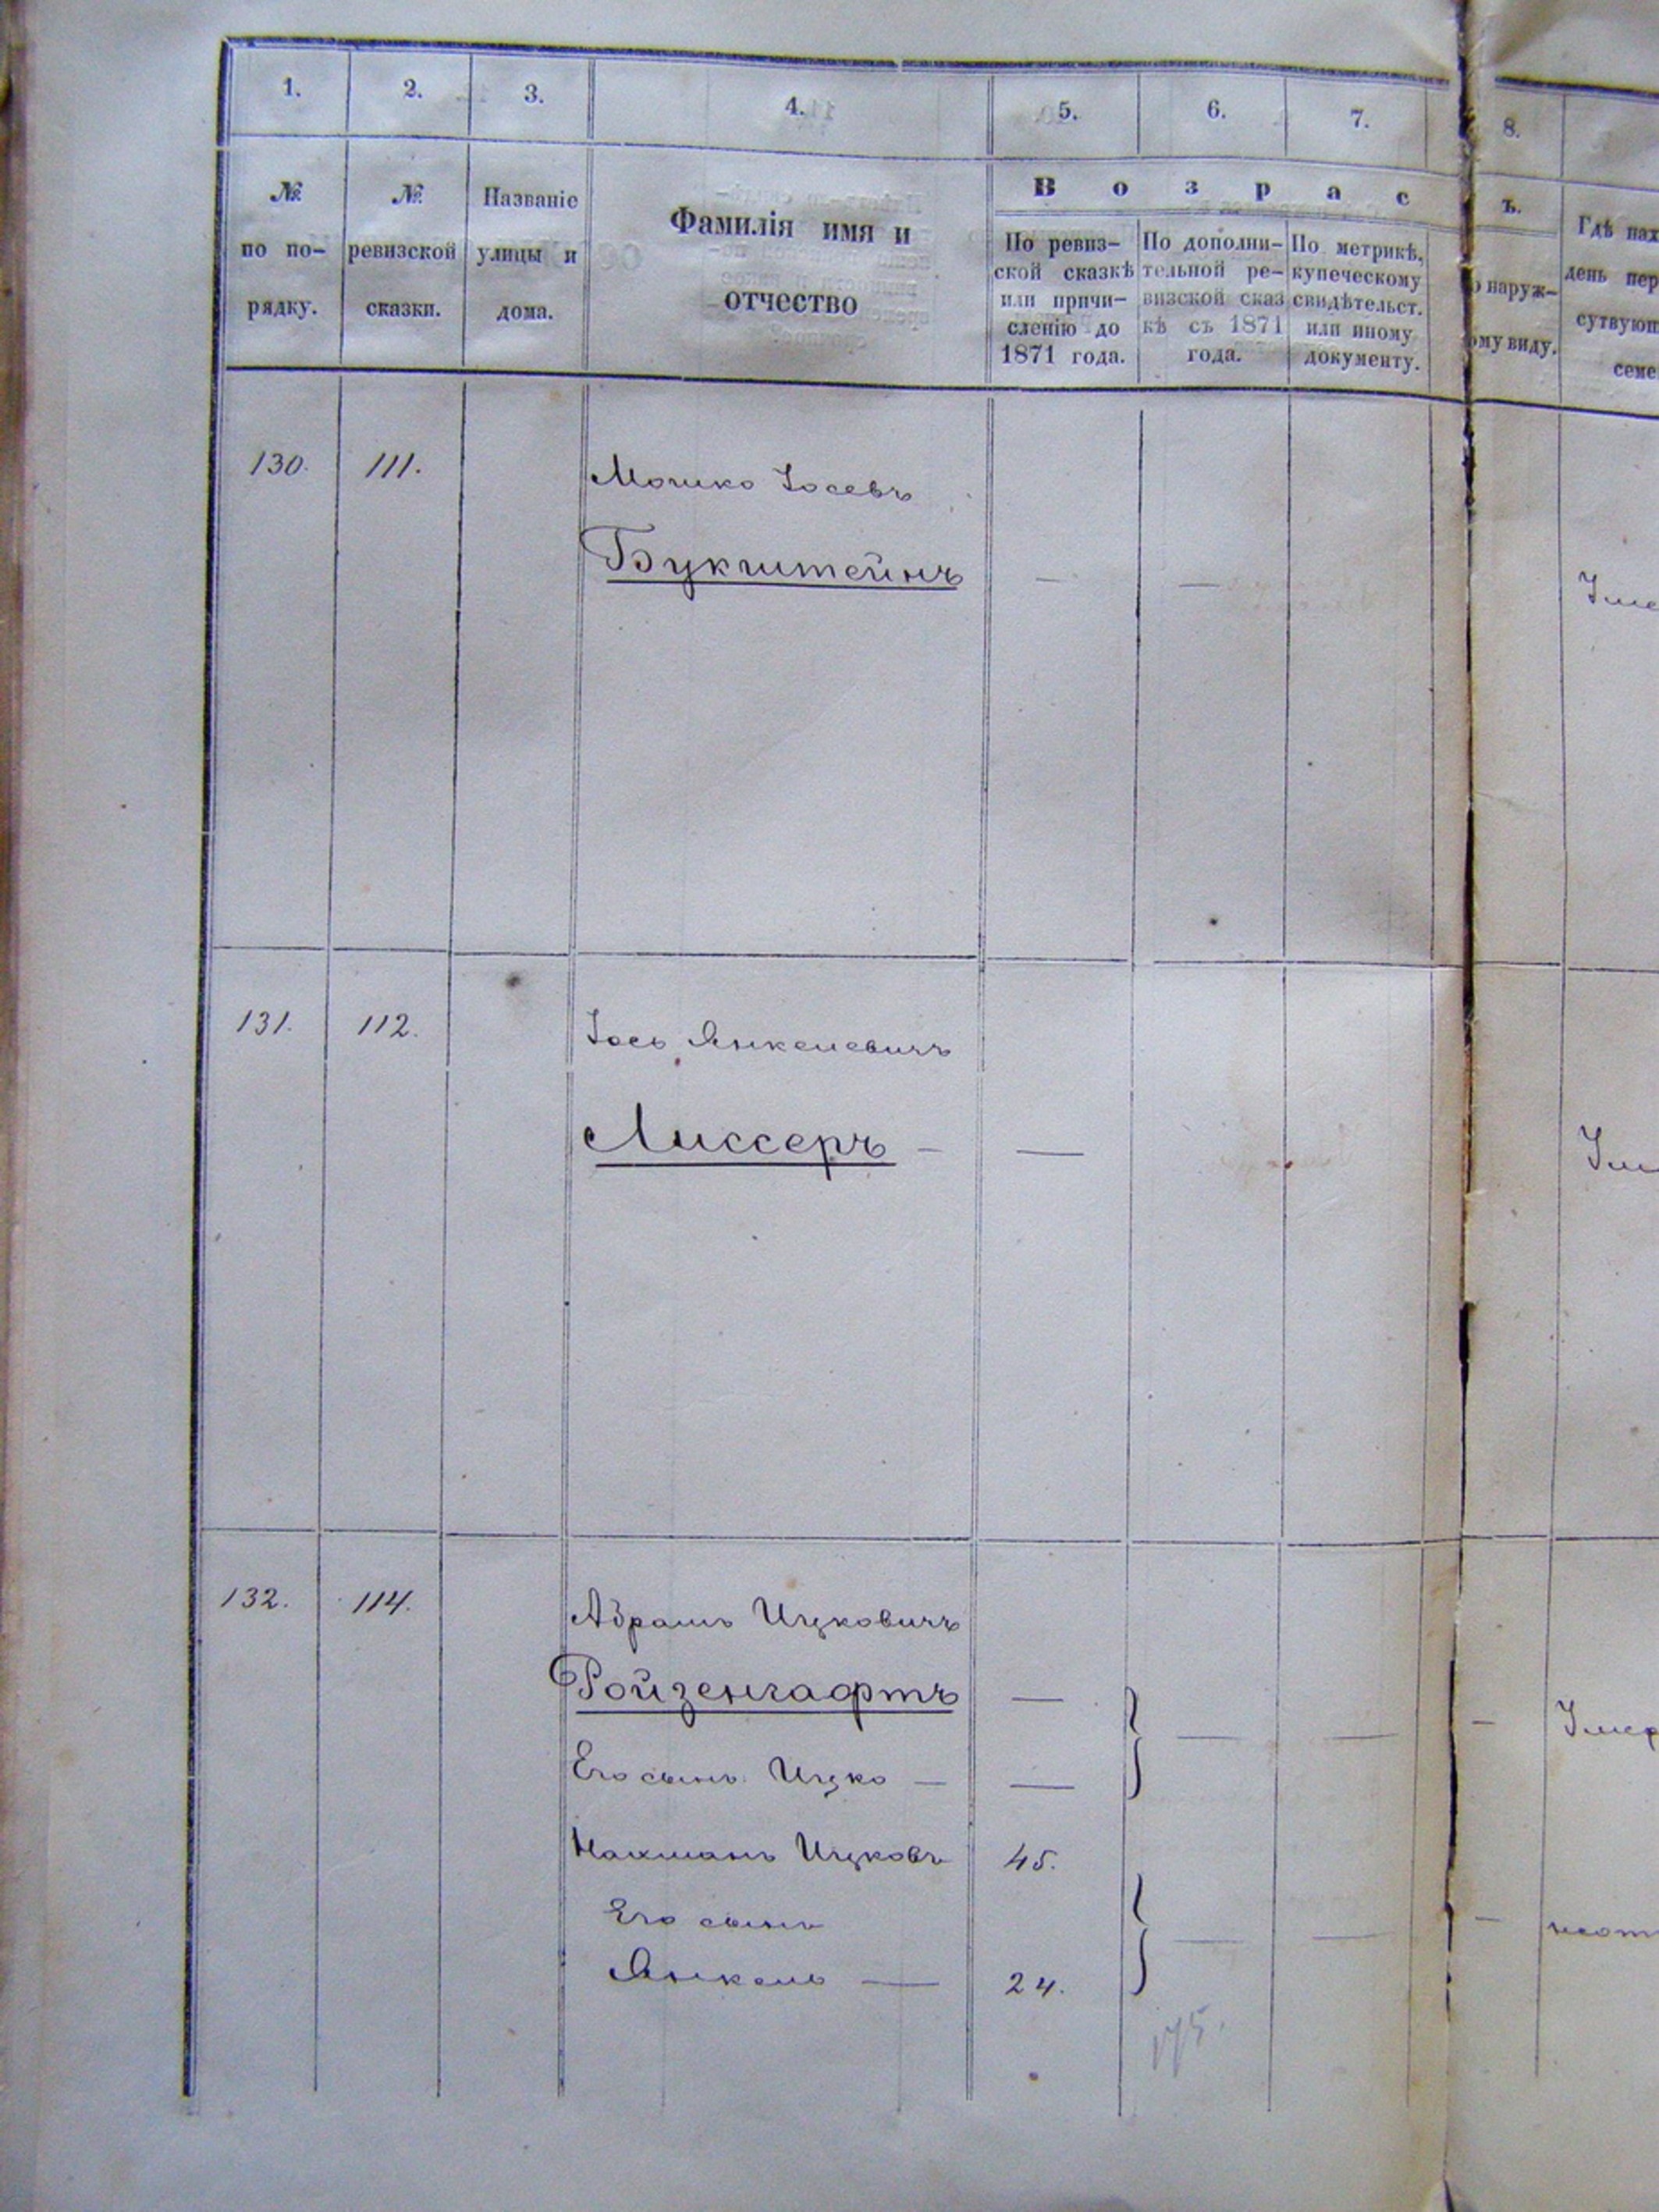 1. 2. 3. 4. 5. 6. 7. 8.
№ по по-рядку.
№ ревизской сказки.
Названіе улицы и дома.
Фамилія имя и
отчество
В о з р а с ъ.
По ревиз-
ской сказкѣ
или причи-
сленію до
1871 года.
По дополни-
тельной ре-
визской сказ
кѣ съ 1871
года.
По метрикѣ,
купеческому
свидѣтельст.
или иному
документу.
о наруж-
ому виду.
Гдѣ нах
день пер
сутвующ
семе
130. 111. Мошко Іосевъ
Букштейнъ — — Уме
131. 112. Іось Янкелевичъ
Лиссеръ — — Ум
132. 114. Абрамъ Ицковичъ
Ройзенгафтъ — — — — Умер
Его сынъ Ицко — —
Нахманъ Ицковъ 45.
Его сынъ — — —
Янкель — 24.
175.